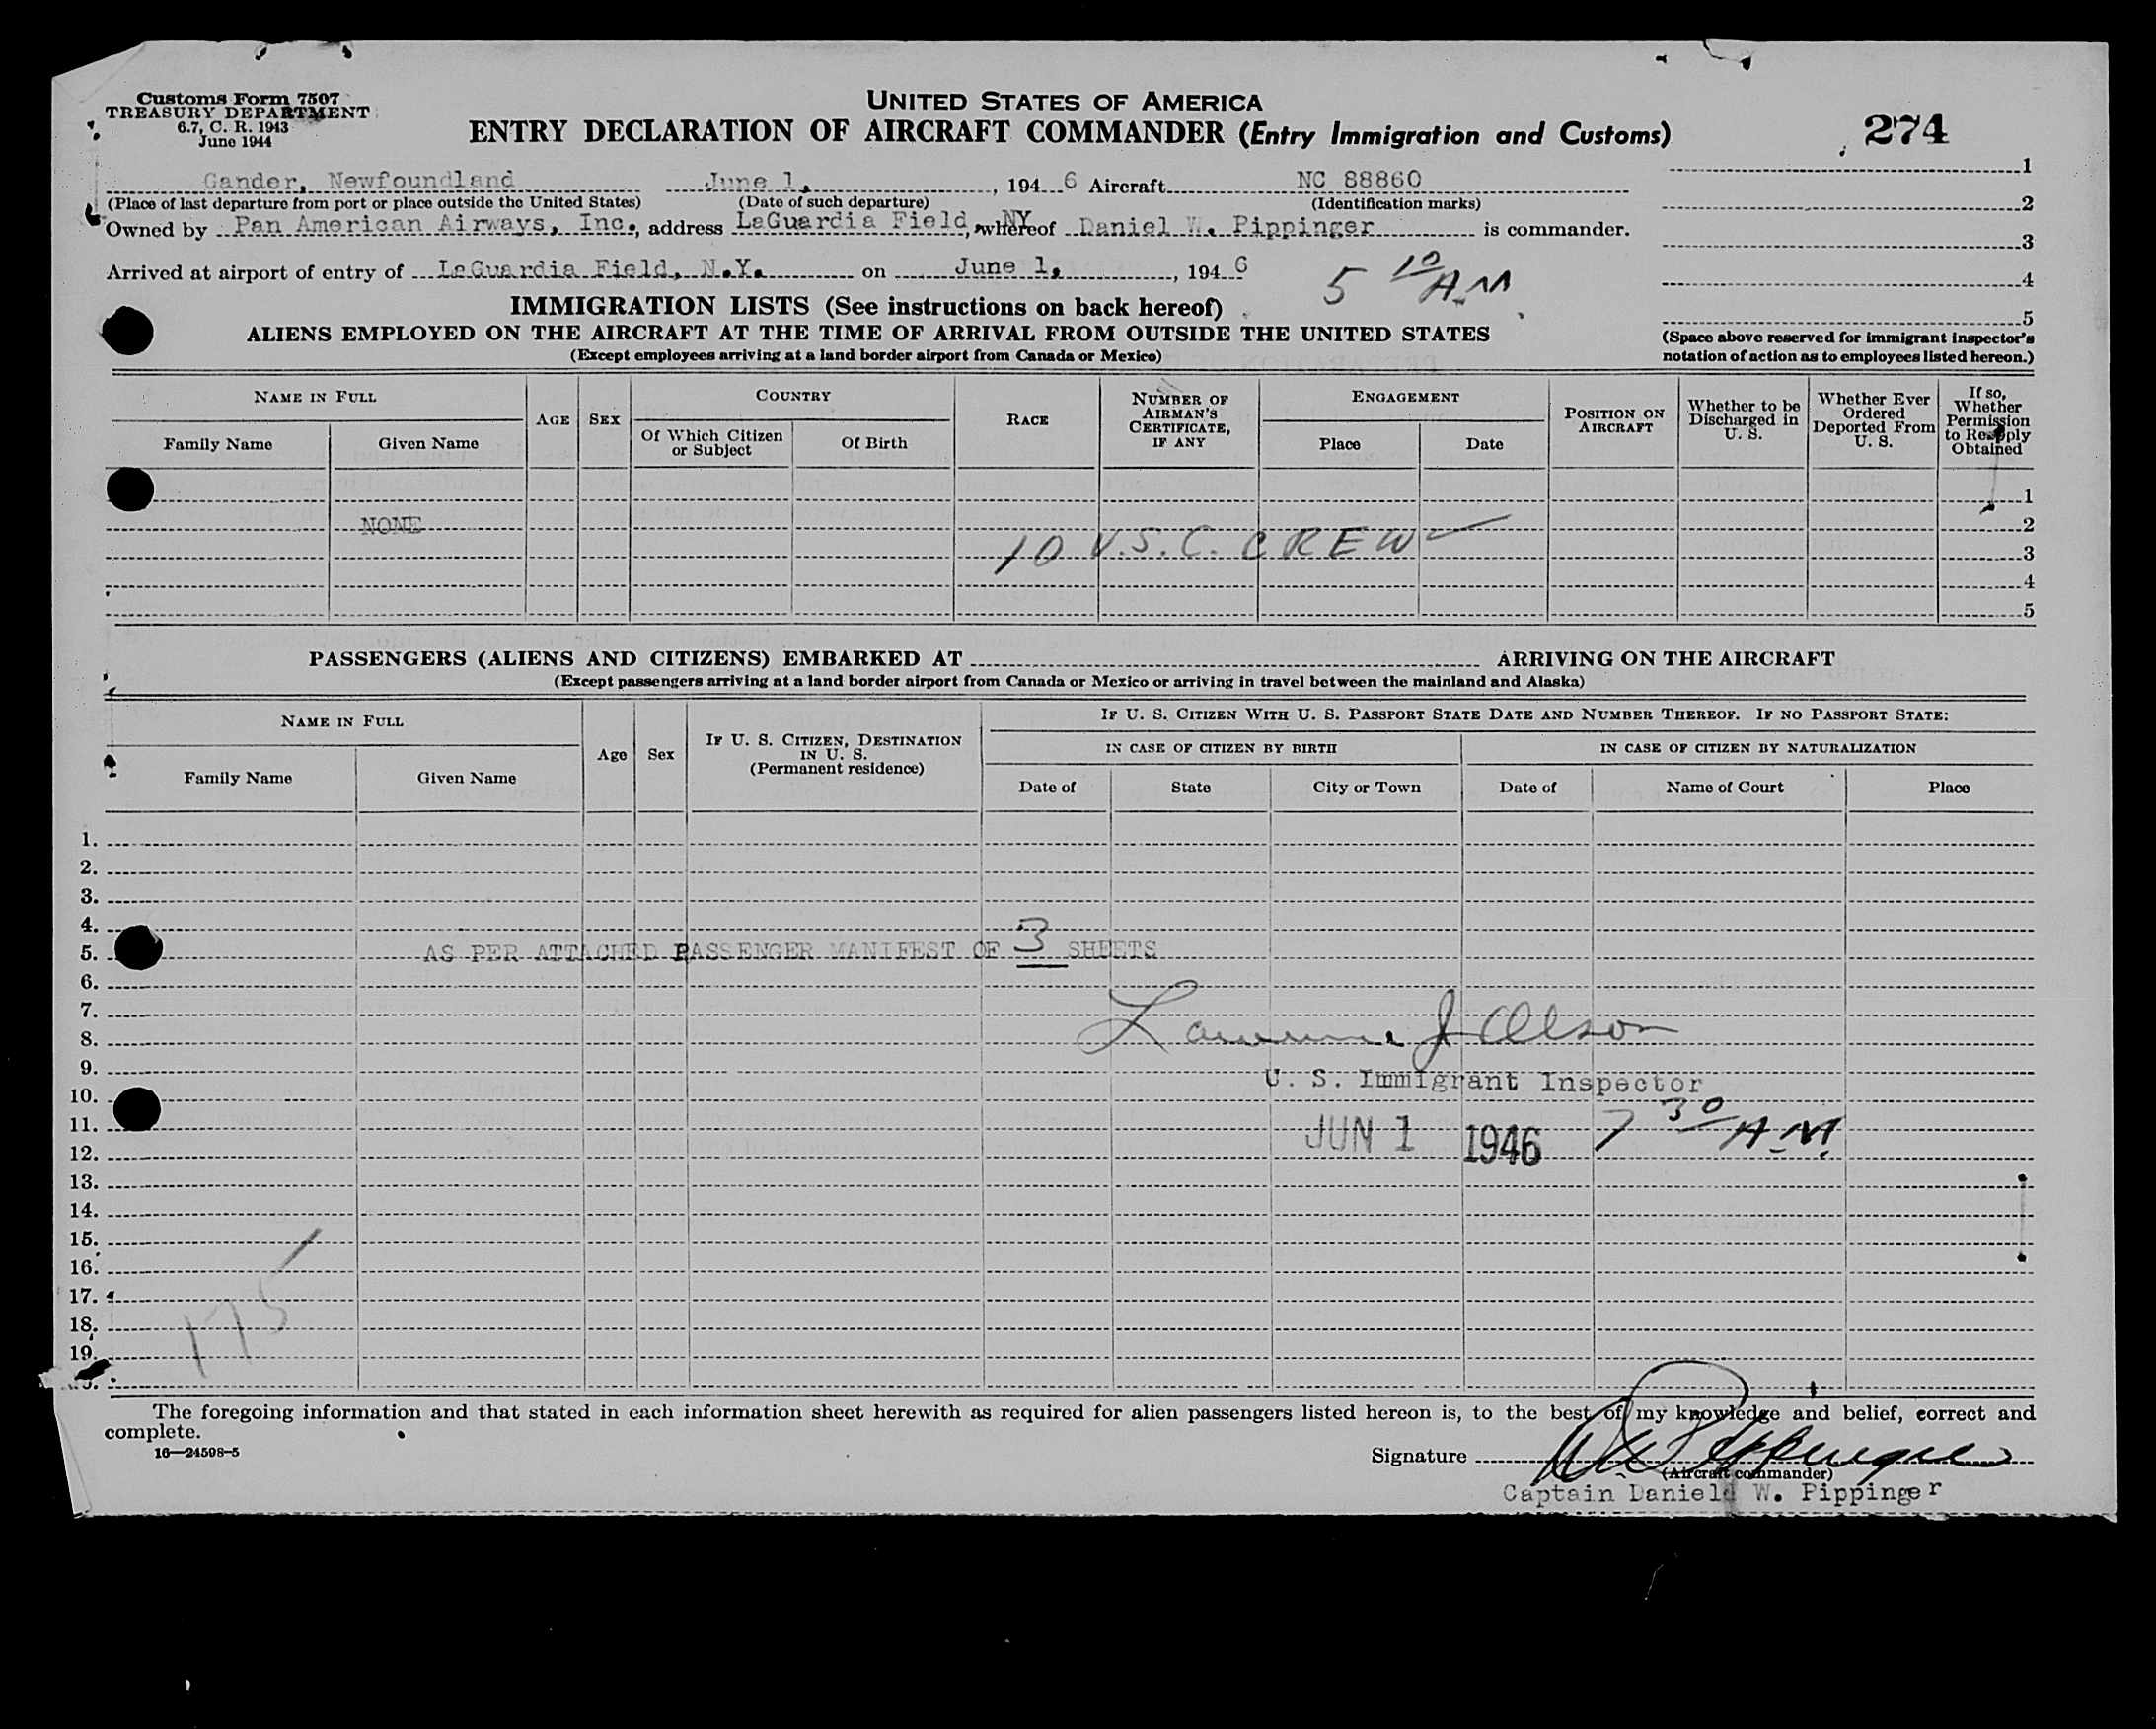 Customs Form 7507
TREASURY DEPARTMENT
6.7, C. R. 1943
June 1944
UNITED STATES OF AMERICA
ENTRY DECLARATION OF AIRCRAFT COMMANDER (Entry Immigration and Customs)
274
Gander, Newfoundland June 1, , 194 6 Aircraft NC 88860
(Place of last departure from port or place outside the United States) (Date of such departure) (Identification marks)
Owned by Pan American Airways, Inc., address LaGuardia Field, NY whereof Daniel W. Pippinger is commander.
Arrived at airport of entry of LaGuardia Field, N.Y. on June 1, , 194 6
5 10 A.M.
1
2
3
4
5
(Space above reserved for immigrant inspector's
notation of action as to employees listed hereon.)
IMMIGRATION LISTS (See instructions on back hereof)
ALIENS EMPLOYED ON THE AIRCRAFT AT THE TIME OF ARRIVAL FROM OUTSIDE THE UNITED STATES
(Except employees arriving at a land border airport from Canada or Mexico)
NAME IN FULL
Family Name
Given Name
AGE
SEX
COUNTRY
Of Which Citizen
or Subject
Of Birth
RACE
NUMBER OF
AIRMAN'S
CERTIFICATE,
IF ANY
ENGAGEMENT
Place
Date
POSITION ON
AIRCRAFT
Whether to be
Discharged in
U. S.
Whether Ever
Ordered
Deported From
U. S.
If so,
Whether
Permission
to Reapply
Obtained
1
NONE 2
10 U.S.C. CREW
3
4
5
PASSENGERS (ALIENS AND CITIZENS) EMBARKED AT ARRIVING ON THE AIRCRAFT
(Except passengers arriving at a land border airport from Canada or Mexico or arriving in travel between the mainland and Alaska)
NAME IN FULL
Family Name
Given Name
Age
Sex
IF U. S. CITIZEN, DESTINATION
IN U. S.
(Permanent residence)
IF U. S. CITIZEN WITH U. S. PASSPORT STATE DATE AND NUMBER THEREOF. IF NO PASSPORT STATE:
IN CASE OF CITIZEN BY BIRTH
IN CASE OF CITIZEN BY NATURALIZATION
Date of
State
City or Town
Date of
Name of Court
Place
1.
2.
3.
4.
5. AS PER ATTACHED PASSENGER MANIFEST OF 3 SHEETS
6.
7.
8. Lawrence J Olson
9.
U. S. Immigrant Inspector
10.
11.
JUN 1 1946 7 30 A.M.
12.
13.
14.
15.
16.
17.
175
18.
19.
The foregoing information and that stated in each information sheet herewith as required for alien passengers listed hereon is, to the best of my knowledge and belief, correct and
complete.
16—24598-5
Signature DW Pippinger
(Aircraft commander)
Captain Daniel W. Pippinger